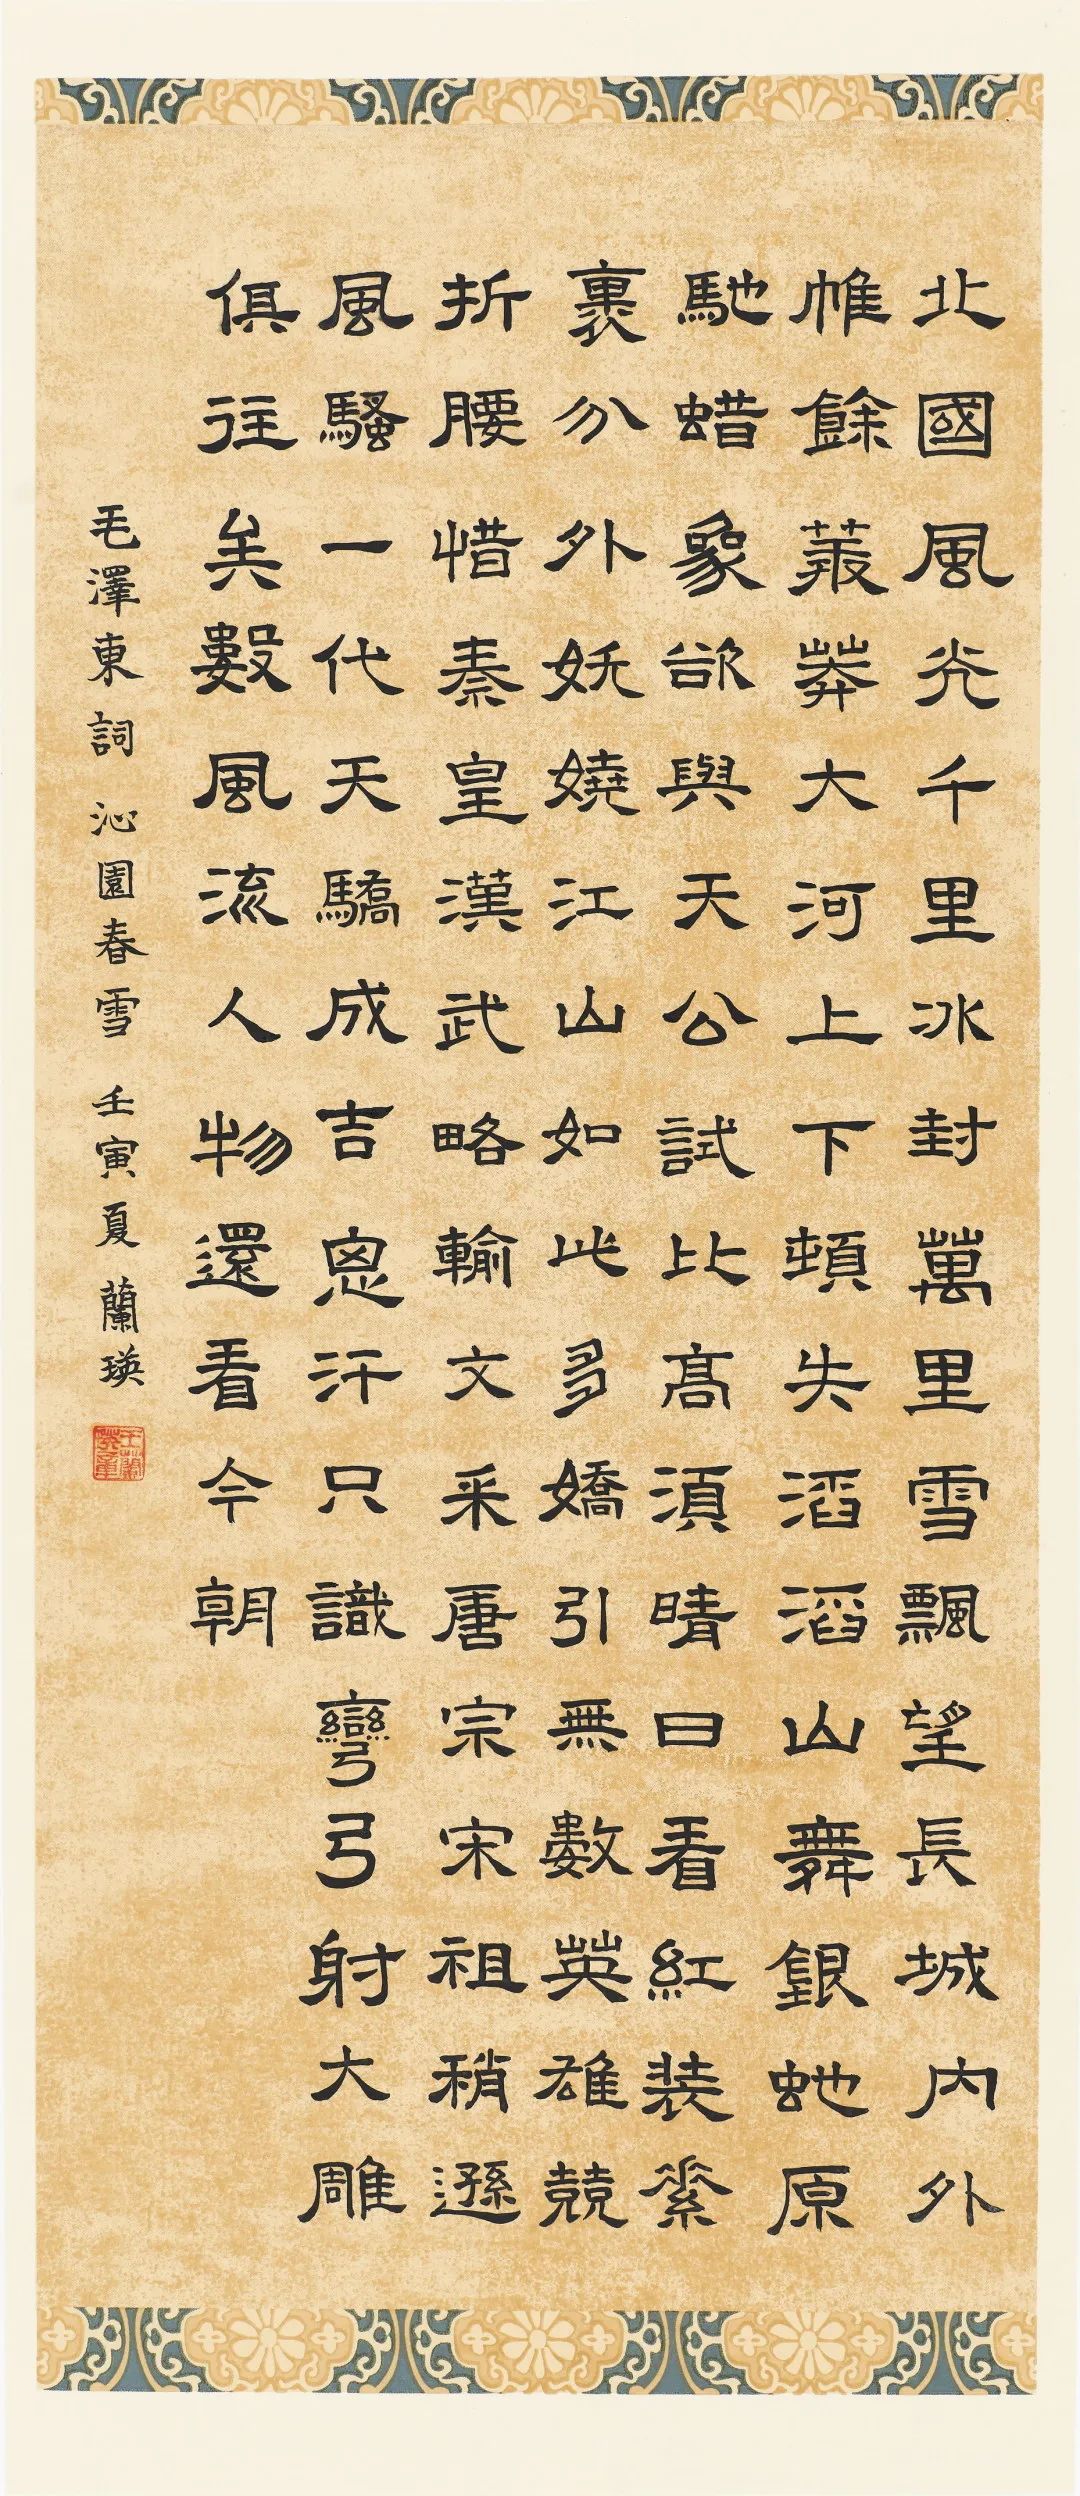 北國風光千里冰封萬里雪飄望長城內外
帷餘莽莽大河上下頓失滔滔山舞銀蛇原
馳蜡象欲與天公試比高須晴日看紅裝素
裹分外妖嬈江山如此多嬌引無數英雄競
折腰惜秦皇漢武略輸文采唐宗宋祖稍遜
風騷一代天驕成吉思汗只識彎弓射大雕
俱往矣數風流人物還看今朝
毛澤東詞 沁園春雪 壬寅夏 蘭瑛